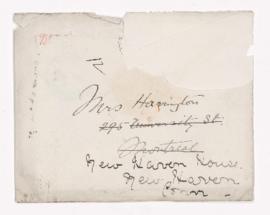 Mrs Harrington
295 University St.
Montreal
New Haven House.
New Haven
Conn